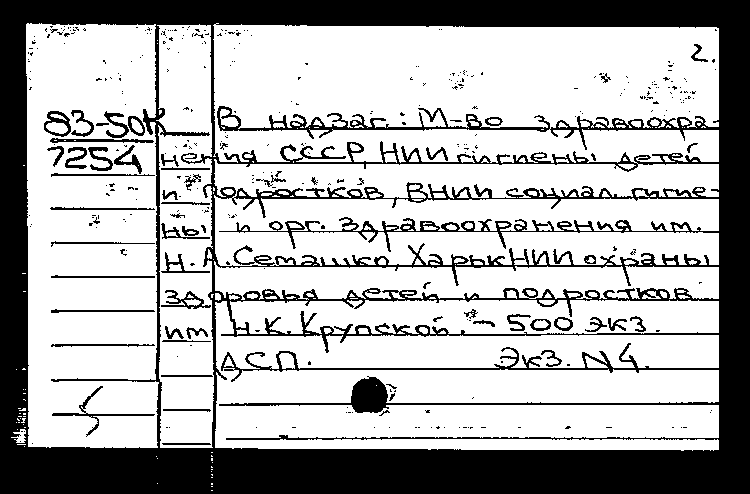 2.
83-50К В надзаг.: М-во здравоохра-
7254 нения СССР, НИИ гигиены детей
и подростков, ВНИИ социал. гигие-
ны и орг. здравоохранения им.
Н.А.Семашко, ХарькНИИ охраны
здоровья детей и подростков
им. Н.К. Крупской. - 500 экз.
ДСП. Экз. N4.